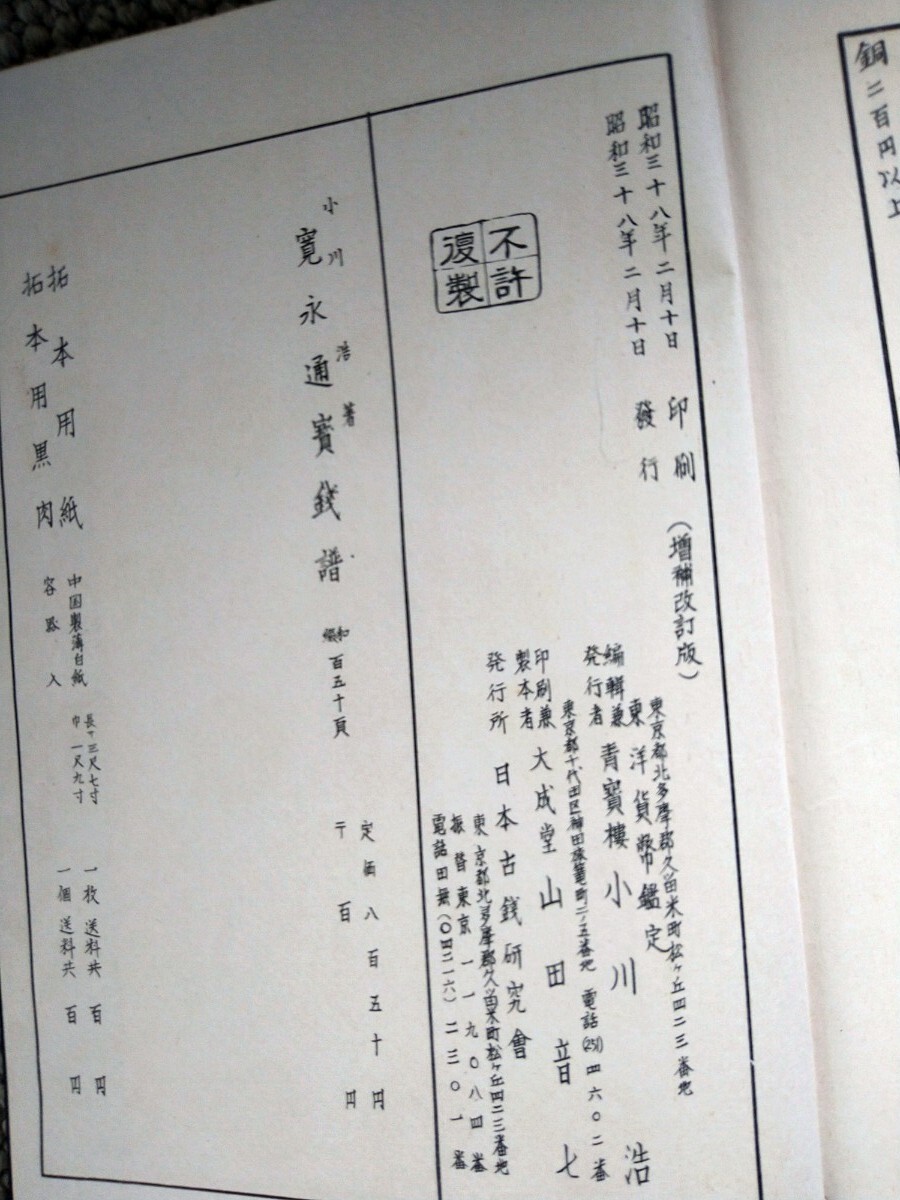 銅二百円以上
昭和三十八年二月十日 印刷
昭和三十八年二月十日 發行
(増補改訂版)
不許複製
東京都北多摩郡久留米町松ヶ丘四二三番地
東洋貨幣鑑定
編輯兼発行者 青寶樓 小川 浩
東京都千代田区神田旅篭町二ノ五番地 電話(251)四六〇二番
印刷兼製本者 大成堂 山田音七
発行所 日本古銭研究會
東京都北多摩郡久留米町松ヶ丘四二三番地
振替東京一一九〇八四番
電話田無(〇四二一六)二三〇一番
小川 浩 著
寛永通寳錢譜 和綴 百五十頁 定価 八百五十円
〒 百円
拓本用紙 中国製薄白紙 長サ三尺七寸 巾一尺九寸 一枚 送料共 百円
拓本用黒肉 容器入 一個 送料共 百円